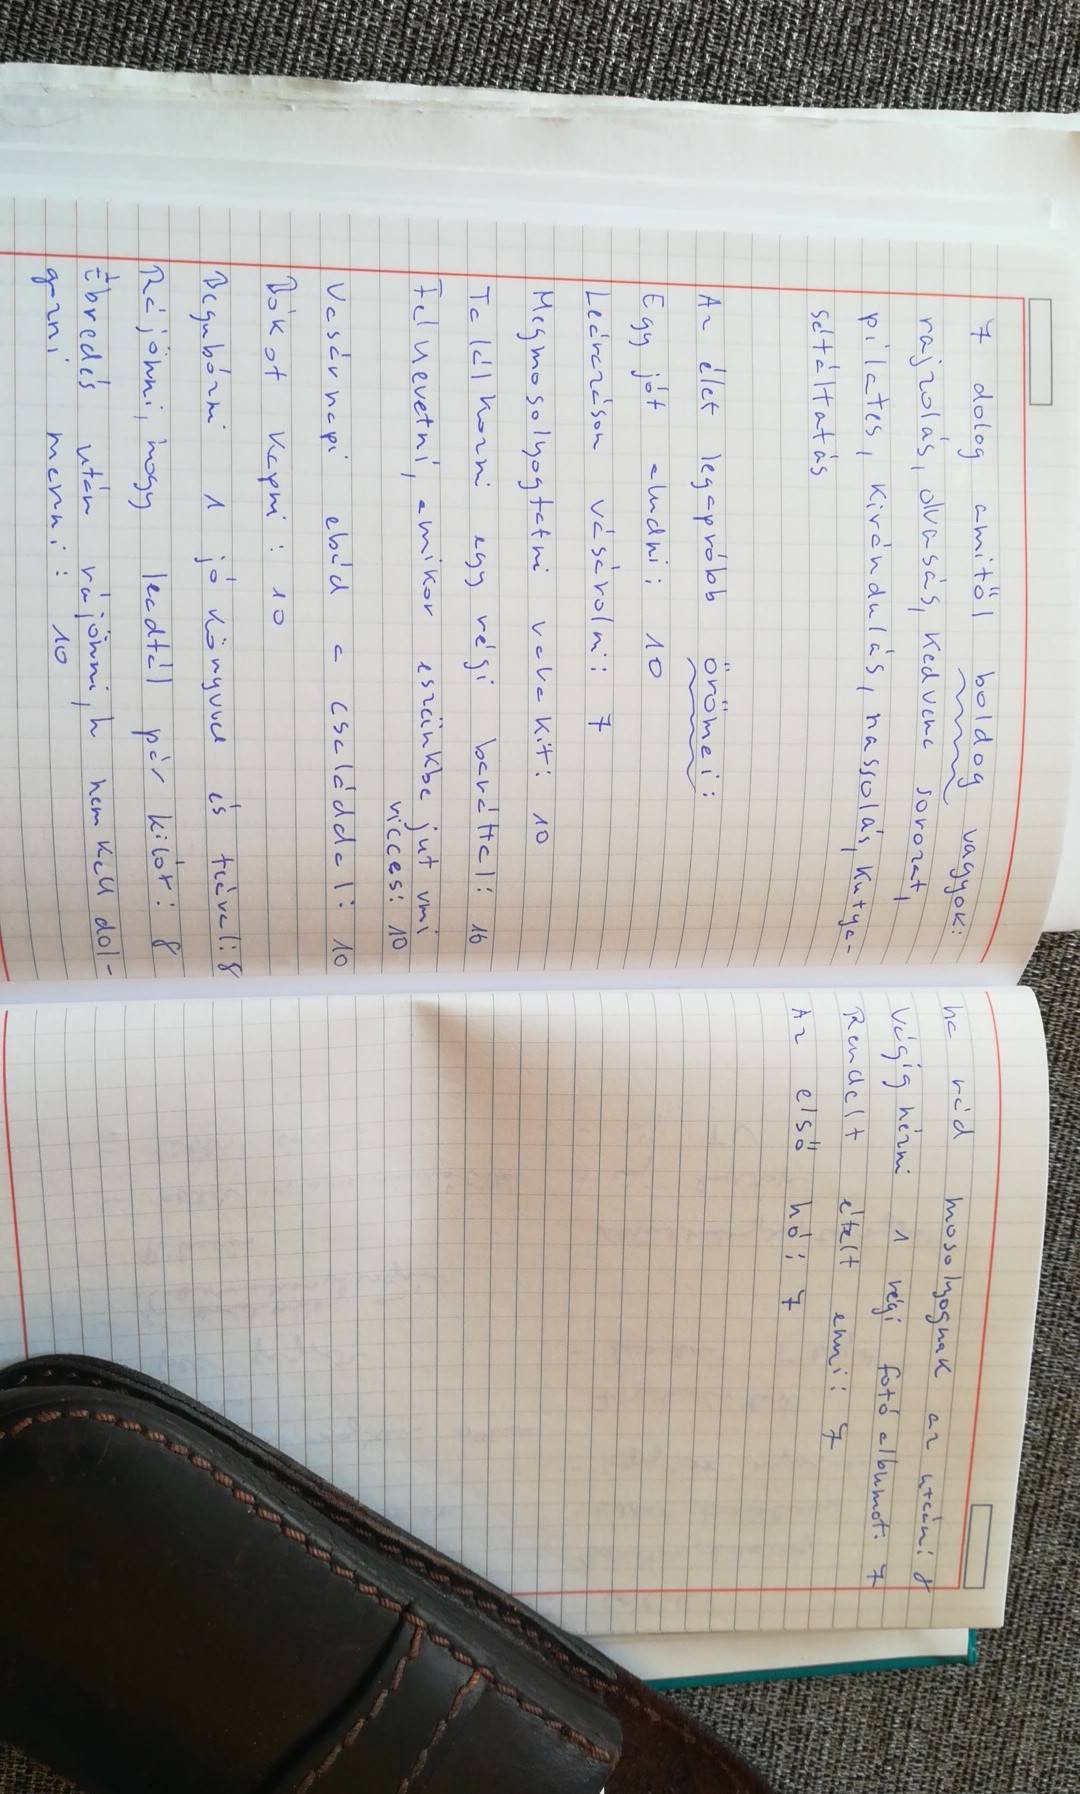 7 dolog amitől boldog vagyok:
rajzolás, olvasás, kedvenc sorozat,
pilates, kirándulás, nassolás, kutya-
sétáltatás
Az élet legapróbb örömei:
Egy jót aludni: 10
Leárazáson vásárolni: 7
Megmosolyogtatni valakit: 10
Találkozni egy régi baráttal: 10
Felnevetni, amikor eszünkbe jut vmi
vicces: 10
Vasárnapi ebéd a családdal: 10
Bókot kapni: 10
Begubózni 1 jó könyvvel és teával: 8
Rájönni, hogy leadtál pár kilót: 8
Ébredés után rájönni, h nem kell dol-
gozni menni: 10
ha rád mosolyognak az utcán: 8
Végignézni 1 régi fotóalbumot: 7
Rendelt ételt enni: 7
Az első hó: 7